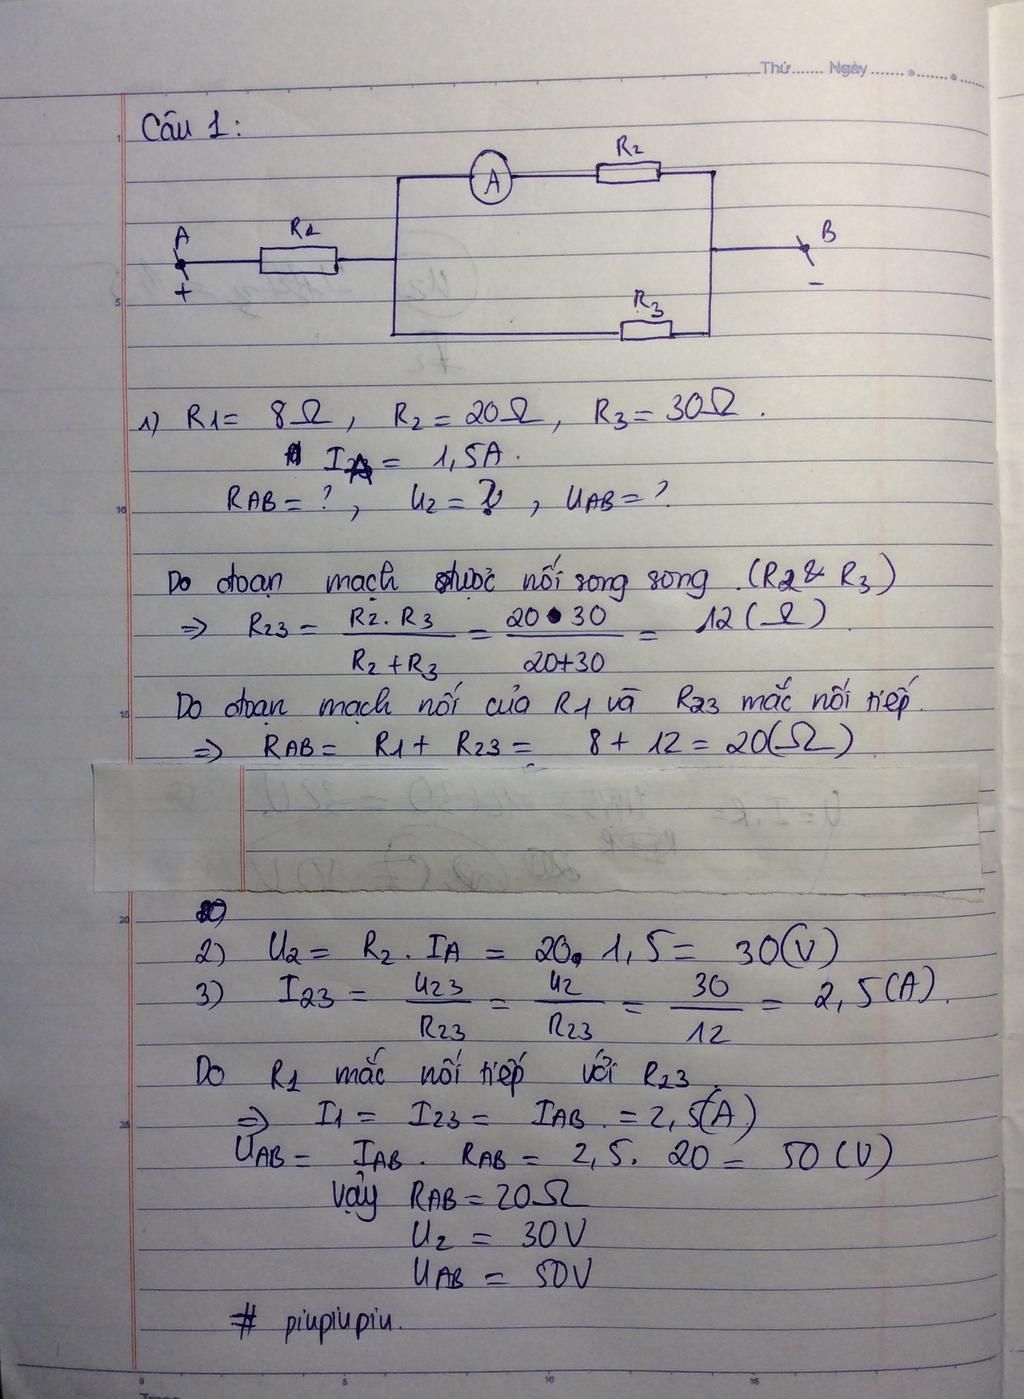 Thứ....... Ngày
Câu 1:
A R1 A R2 B
+ R3 −
1) R1 = 8Ω, R2 = 20Ω, R3 = 30Ω.
IA = 1,5A.
RAB = ?, U2 = ?, UAB = ?
Do đoạn mạch được nối song song (R2 & R3)
=> R23 = R2. R3 / R2 + R3 = 20 . 30 / 20+30 = 12 (Ω)
Do đoạn mạch nối của R1 và R23 mắc nối tiếp.
=> RAB = R1 + R23 = 8 + 12 = 20(Ω)
2) U2 = R2 . IA = 20. 1,5 = 30(V)
3) I23 = U23 / R23 = U2 / R23 = 30 / 12 = 2,5(A).
Do R1 mắc nối tiếp với R23.
=> I1 = I23 = IAB. = 2,5(A)
UAB = IAB. RAB = 2,5. 20 = 50 (V)
Vậy RAB = 20Ω
U2 = 30V
UAB = 50V
# piupiupiu.